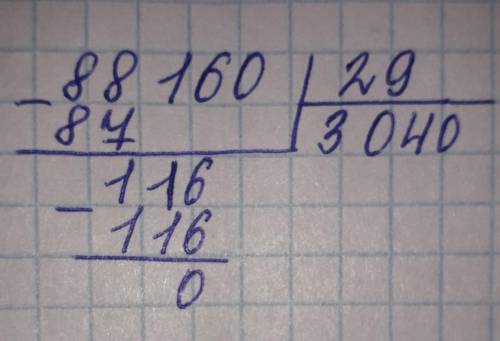 - 88 160 | 29
87 | 3 040
- 116
116
0